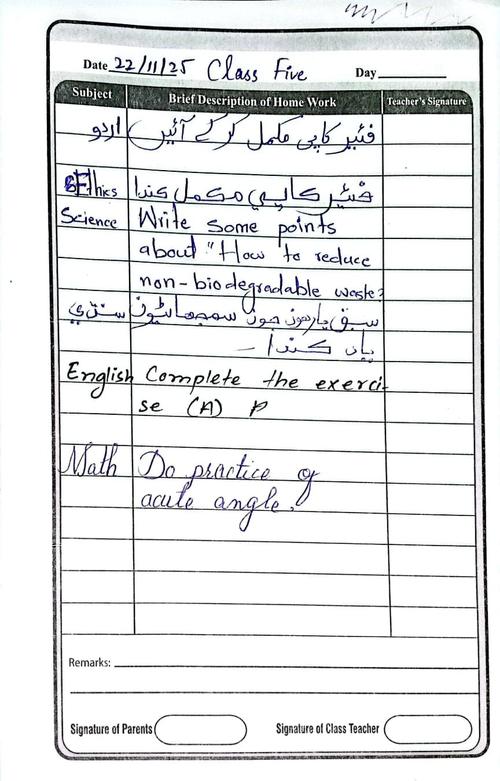 Date 22/11/25 Class Five Day
Subject Brief Description of Home Work Teacher's Signature
اردو فئیر کاپی مکمل کر کے آئیں
Ethics فئیر کاپي مڪمل ڪندا
Science Write some points
about "How to reduce
non-biodegradable waste?
سنڌي سبق يارهون جون سمجهاڻيون
ياد ڪندا ۔
English Complete the exerci-
se (A) P
Math Do practice of
acute angle.
Remarks:
Signature of Parents Signature of Class Teacher